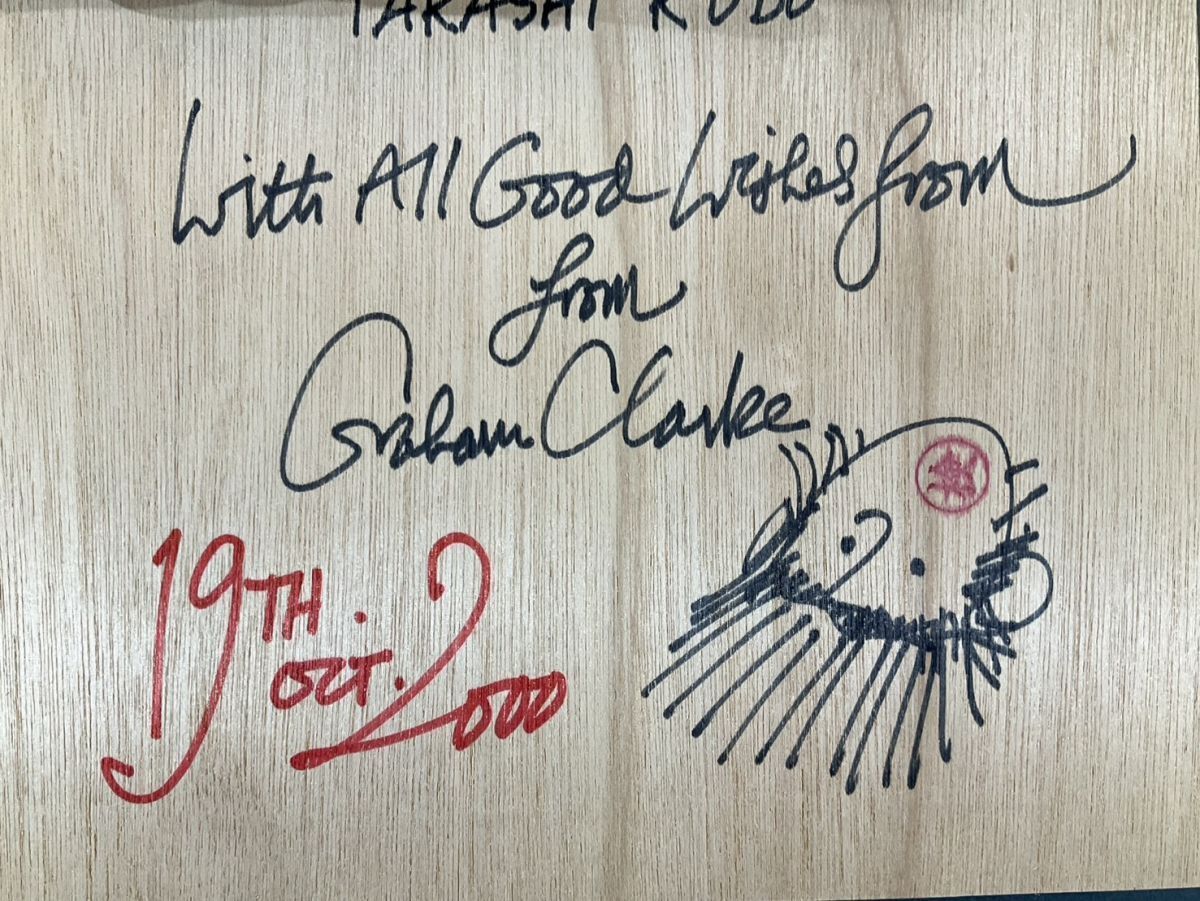 TAKASHI KUDO
With All Good Wishes from
from
Graham Clarke
19TH.
OCT. 2000